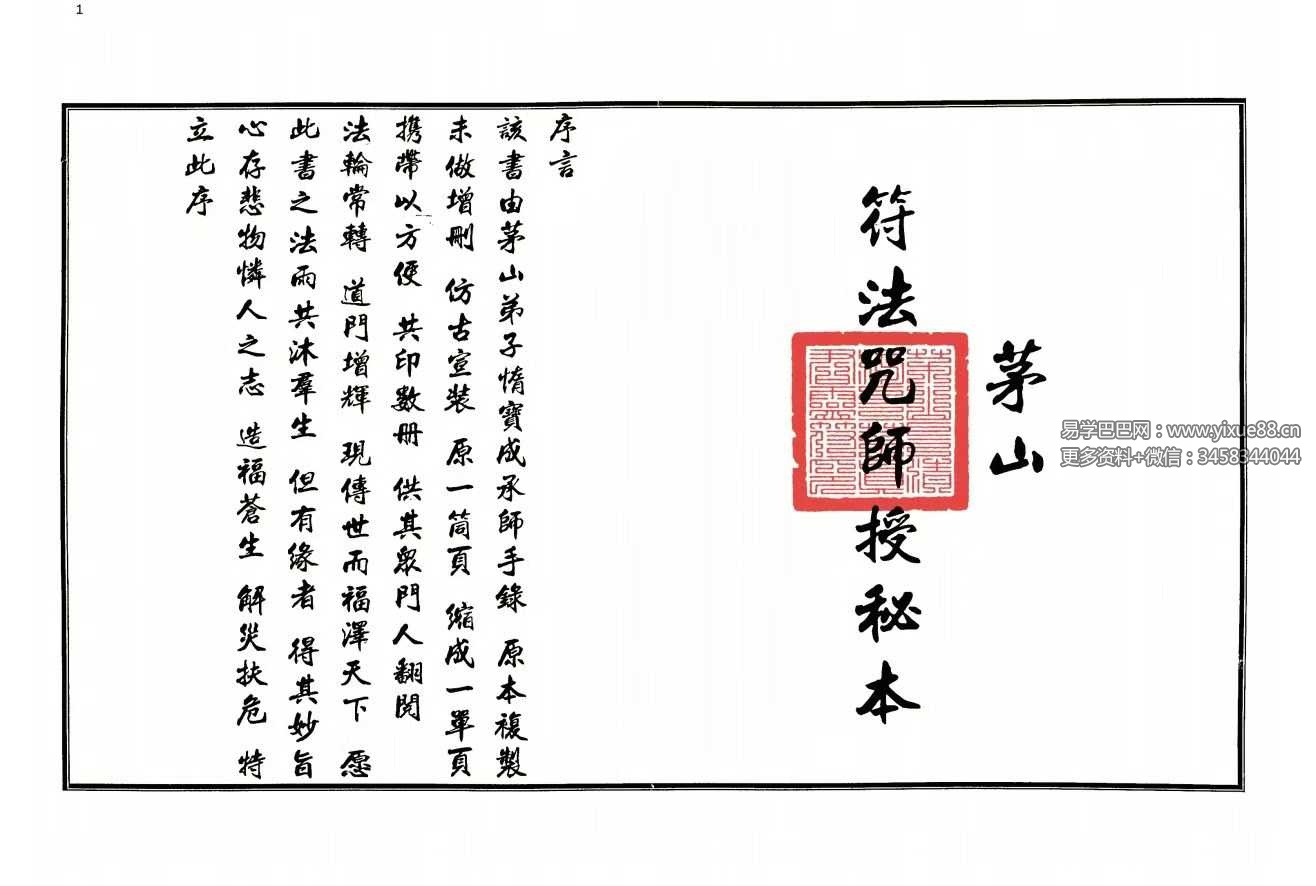 1
茅山
符法咒師授秘本
序言
該書由茅山弟子惰寶成承師手錄 原本複製
未做增刪 仿古宣裝 原一筒頁 缩成一單頁
携帶以方便 共印數冊 供其眾門人翻閱
法輪常轉 道門增輝 現傳世而福澤天下 愿
此書之法雨共沐羣生 但有緣者 得其妙旨
心存悲物憐人之志 造福蒼生 解災扶危 特
立此序
易学巴巴网：www.yixue88.cn
更多资料+微信：3458344044